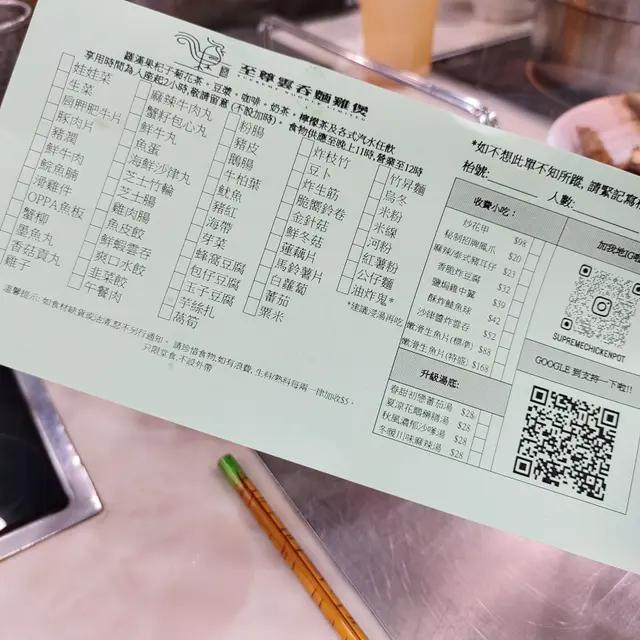 至尊雲吞麵雞煲
羅漢果杞子菊花茶、豆漿、咖啡、奶茶、檸檬茶及各式汽水任飲
享用時間為入座起2小時,敬請留意(不設加時)。食物供應至晚上11時,餐業至12時
娃娃菜
生菜
唇胛肥牛片
豚肉片
豬潤
鮮牛肉
鯇魚腩
滑雞件
OPPA魚板
蟹柳
墨魚丸
香菇貢丸
雞子
麻辣牛肉丸
蟹籽包心丸
鮮牛丸
魚蛋
海鮮沙律丸
芝士竹輪
芝士腸
雞肉腸
魚皮餃
鮮蝦雲吞
爽口水餃
韭菜餃
午餐肉
粉腸
豬皮
鵝腸
牛柏葉
魷魚
豬紅
海帶
芽菜
蜂窩豆腐
包仔豆腐
玉子豆腐
芋絲扎
蒟蒻
炸枝竹
豆卜
炸生筋
脆響鈴卷
金針菇
鮮冬菇
蓮藕片
馬鈴薯片
白蘿蔔
蕃茄
粟米
竹昇麵
烏冬
米粉
米線
河粉
紅薯粉
公仔麵
油炸鬼*
*建議浸湯再吃
溫馨提示: 如食材缺貨或沽清,恕不另行通知。 請珍惜食物,如有浪費, 生料/熟料每兩一律加收$5。
只限堂食,不設外帶
*如不想此單不知所蹤, 請緊記寫
枱號: 人數:
收費小吃:
炒花甲 $98
秘制招牌鳳爪 $20
麻辣/泰式豬耳仔 $23
香脆炸豆腐 $32
鹽焗雞中翼 $39
酥炸鯪魚球 $42
沙律醬炸雲吞 $52
嫩滑生魚片(標準) $88
嫩滑生魚片(特盛) $168
升級湯底:
春甜初戀蕃茄湯 $28
夏涼花膠藥膳湯 $28
秋風濃郁沙嗲湯 $28
冬暖川味麻辣湯 $28
加我地IG
SUPREMECHICKENPOT
GOOGLE 到支持一下啦!!